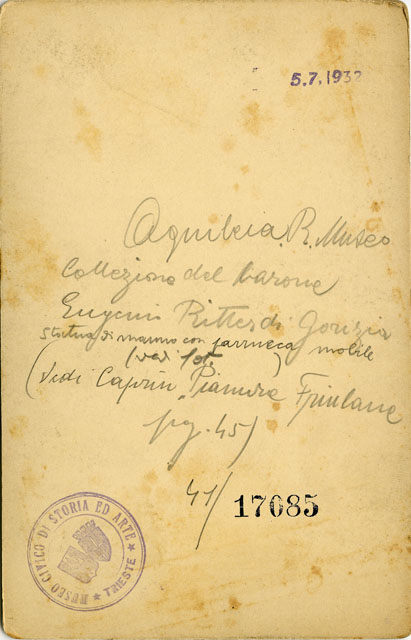 5.7.1932
Aquileia. R. Museo
Collezione del barone
Eugenio Ritter di Gorizia
statua di marmo con parrucca mobile
(vedi fot.)
(Vedi Caprin "Pianure Friulane
pg. 45)
41/ 17085
MUSEO CIVICO DI STORIA ED ARTE
TRIESTE